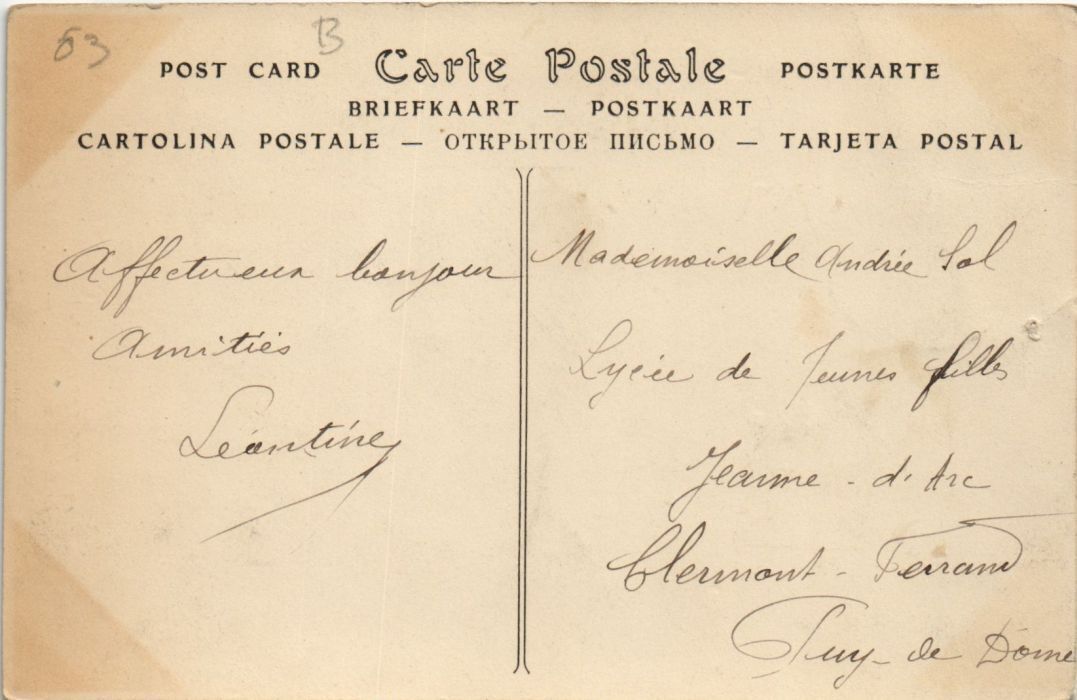 63 B
POST CARD Carte Postale POSTKARTE
BRIEFKAART — POSTKAART
CARTOLINA POSTALE — ОТКРЫТОЕ ПИСЬМО — TARJETA POSTAL
Affectueux bonjour
Amitiés
Léontine
Mademoiselle Andrée Sol
Lycée de Jeunes filles
Jeanne - d'Arc
Clermont - Ferrand
Puy - de Dome